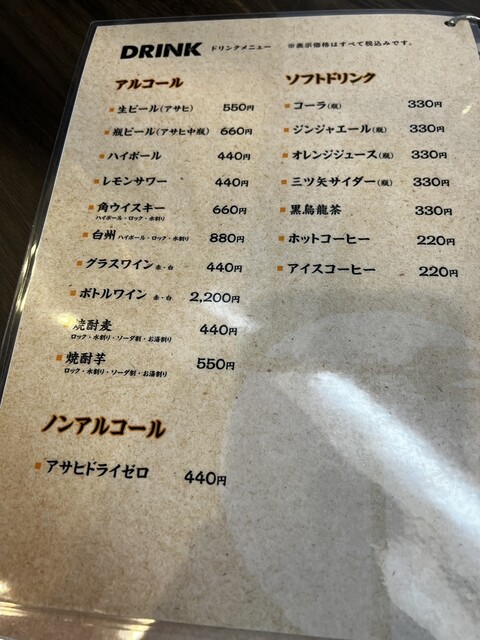 DRINK ドリンクメニュー ※表示価格はすべて税込みです。
アルコール
生ビール(アサヒ) 550円
瓶ビール(アサヒ中瓶) 660円
ハイボール 440円
レモンサワー 440円
角ウイスキー 660円
ハイボール・ロック・水割り
白州 ハイボール・ロック・水割り 880円
グラスワイン 赤・白 440円
ボトルワイン 赤・白 2,200円
焼酎麦 440円
ロック・水割り・ソーダ割・お湯割り
焼酎芋 550円
ロック・水割り・ソーダ割・お湯割り
ノンアルコール
アサヒドライゼロ 440円
ソフトドリンク
コーラ(瓶) 330円
ジンジャエール(瓶) 330円
オレンジジュース(瓶) 330円
三ツ矢サイダー(瓶) 330円
黒烏龍茶 330円
ホットコーヒー 220円
アイスコーヒー 220円